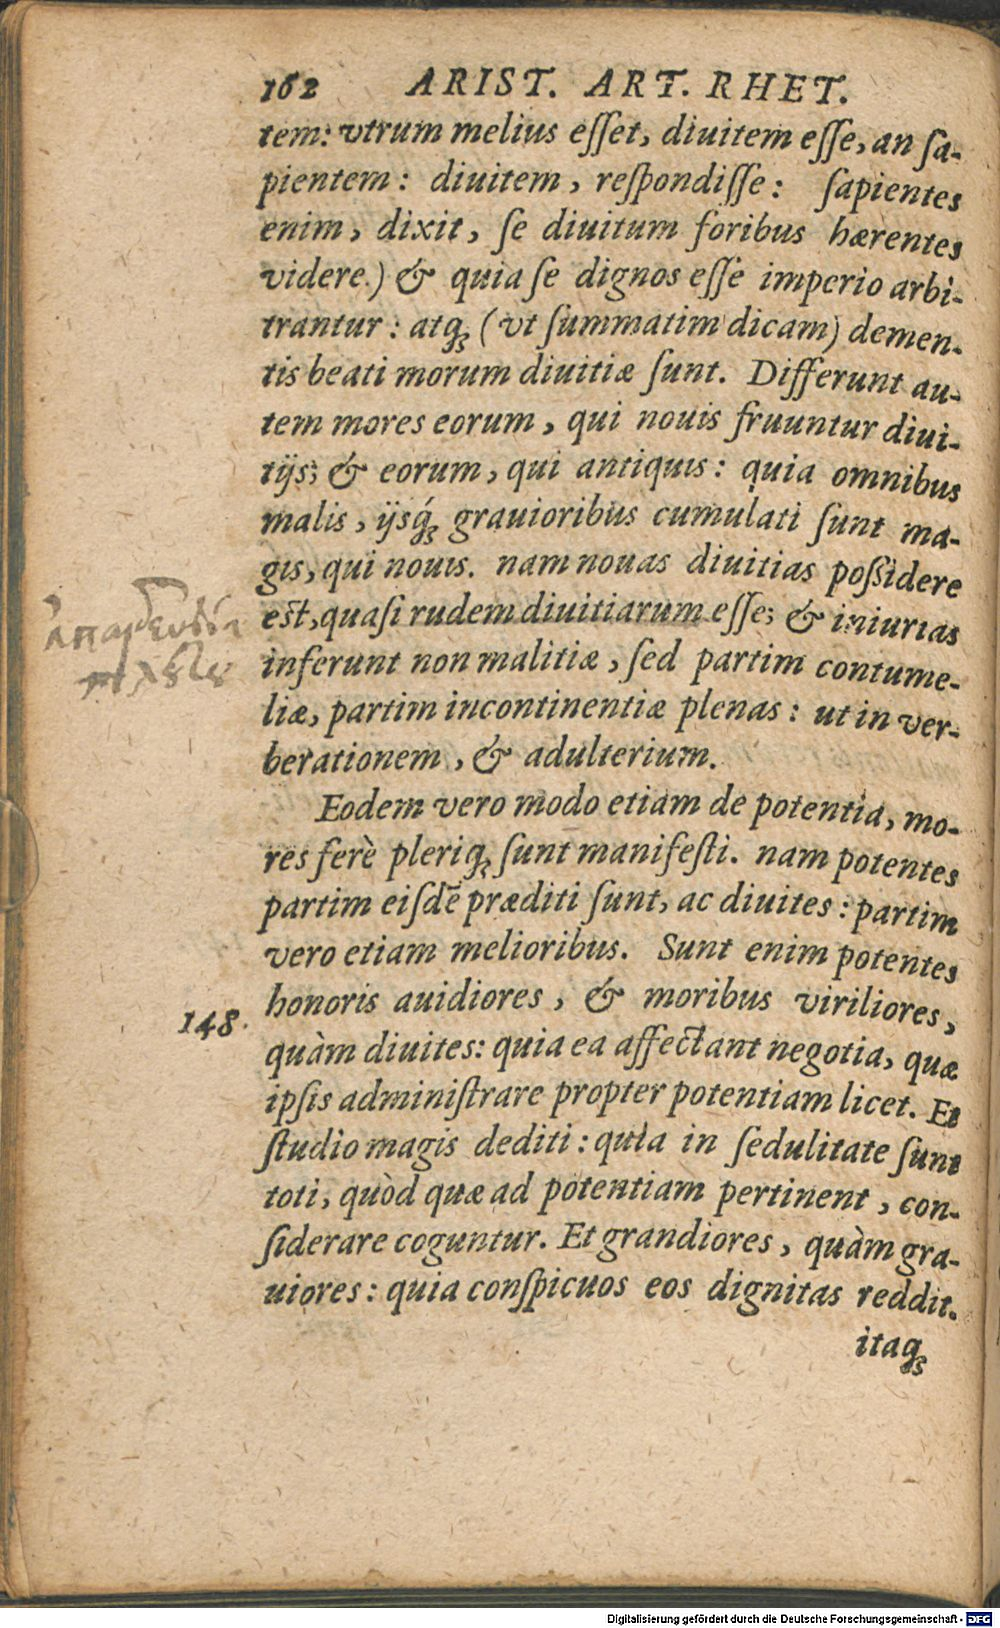 162 ARIST. ART. RHET.
tem: vtrum melius eſſet, diuitem eſſe, an ſa-
pientem: diuitem, reſpondiſſe: ſapientes
enim, dixit, ſe diuitum foribus hærentes
videre.) & quia ſe dignos eſſe imperio arbi-
trantur: atq; (vt ſummatim dicam) demen-
tis beati morum diuitiæ ſunt. Differunt au-
tem mores eorum, qui nouis fruuntur diui-
tijs; & eorum, qui antiquis: quia omnibus
malis, ijsq́; grauioribus cumulati ſunt ma-
gis, qui nouis. nam nouas diuitias poßidere
est, quaſi rudem diuitiarum eſſe; & iniurias
ἀπαιδευσία
πλούτου
inferunt non malitiæ, ſed partim contume-
liæ, partim incontinentiæ plenas: ut in ver-
berationem, & adulterium.
Eodem vero modo etiam de potentia, mo-
res ferè pleriq; ſunt manifeſti. nam potentes
partim eiſdē præditi ſunt, ac diuites: partim
vero etiam melioribus. Sunt enim potentes
honoris auidiores, & moribus viriliores,
148.
quàm diuites: quia ea affectant negotia, quæ
ipſis adminiſtrare propter potentiam licet. Et
ſtudio magis dediti: quia in ſedulitate ſunt
toti, quòd quæ ad potentiam pertinent, con-
ſiderare coguntur. Et grandiores, quàm gra-
uiores: quia conſpicuos eos dignitas reddit.
itaq;
Digitalisierung gefördert durch die Deutsche Forschungsgemeinschaft - DFG